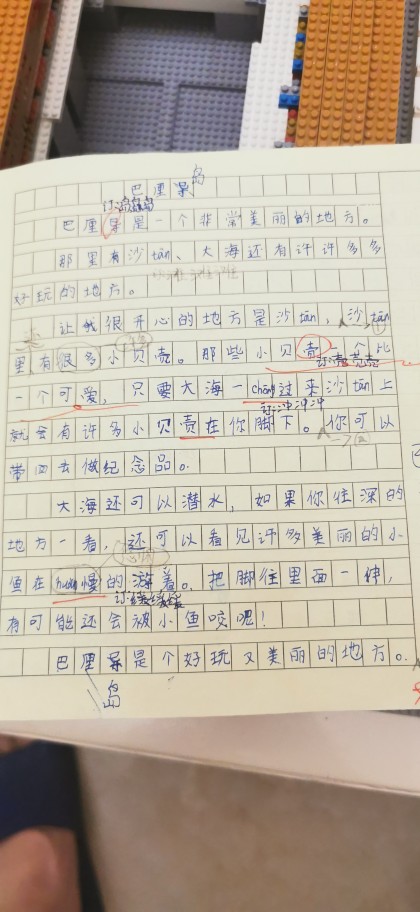 岛
巴厘导
巴厘导是一个非常美丽的地方。
那里有沙tān、大海还有许许多多
好玩的地方。
让我很开心的地方是沙tān,沙tān
里有很多小贝壳。那些小贝壳一个比
一个可爱,只要大海一chōng过来沙tān上
就会有许多小贝责在你脚下。你可以
带回去做纪念品。
大海还可以潜水,如果你往深的
地方一看,还可以看见许多美丽的小
鱼在huǎng慢的游着。把脚往里面一伸,
有可能还会被小鱼咬呢!
巴厘导是个好玩又美丽的地方。
岛